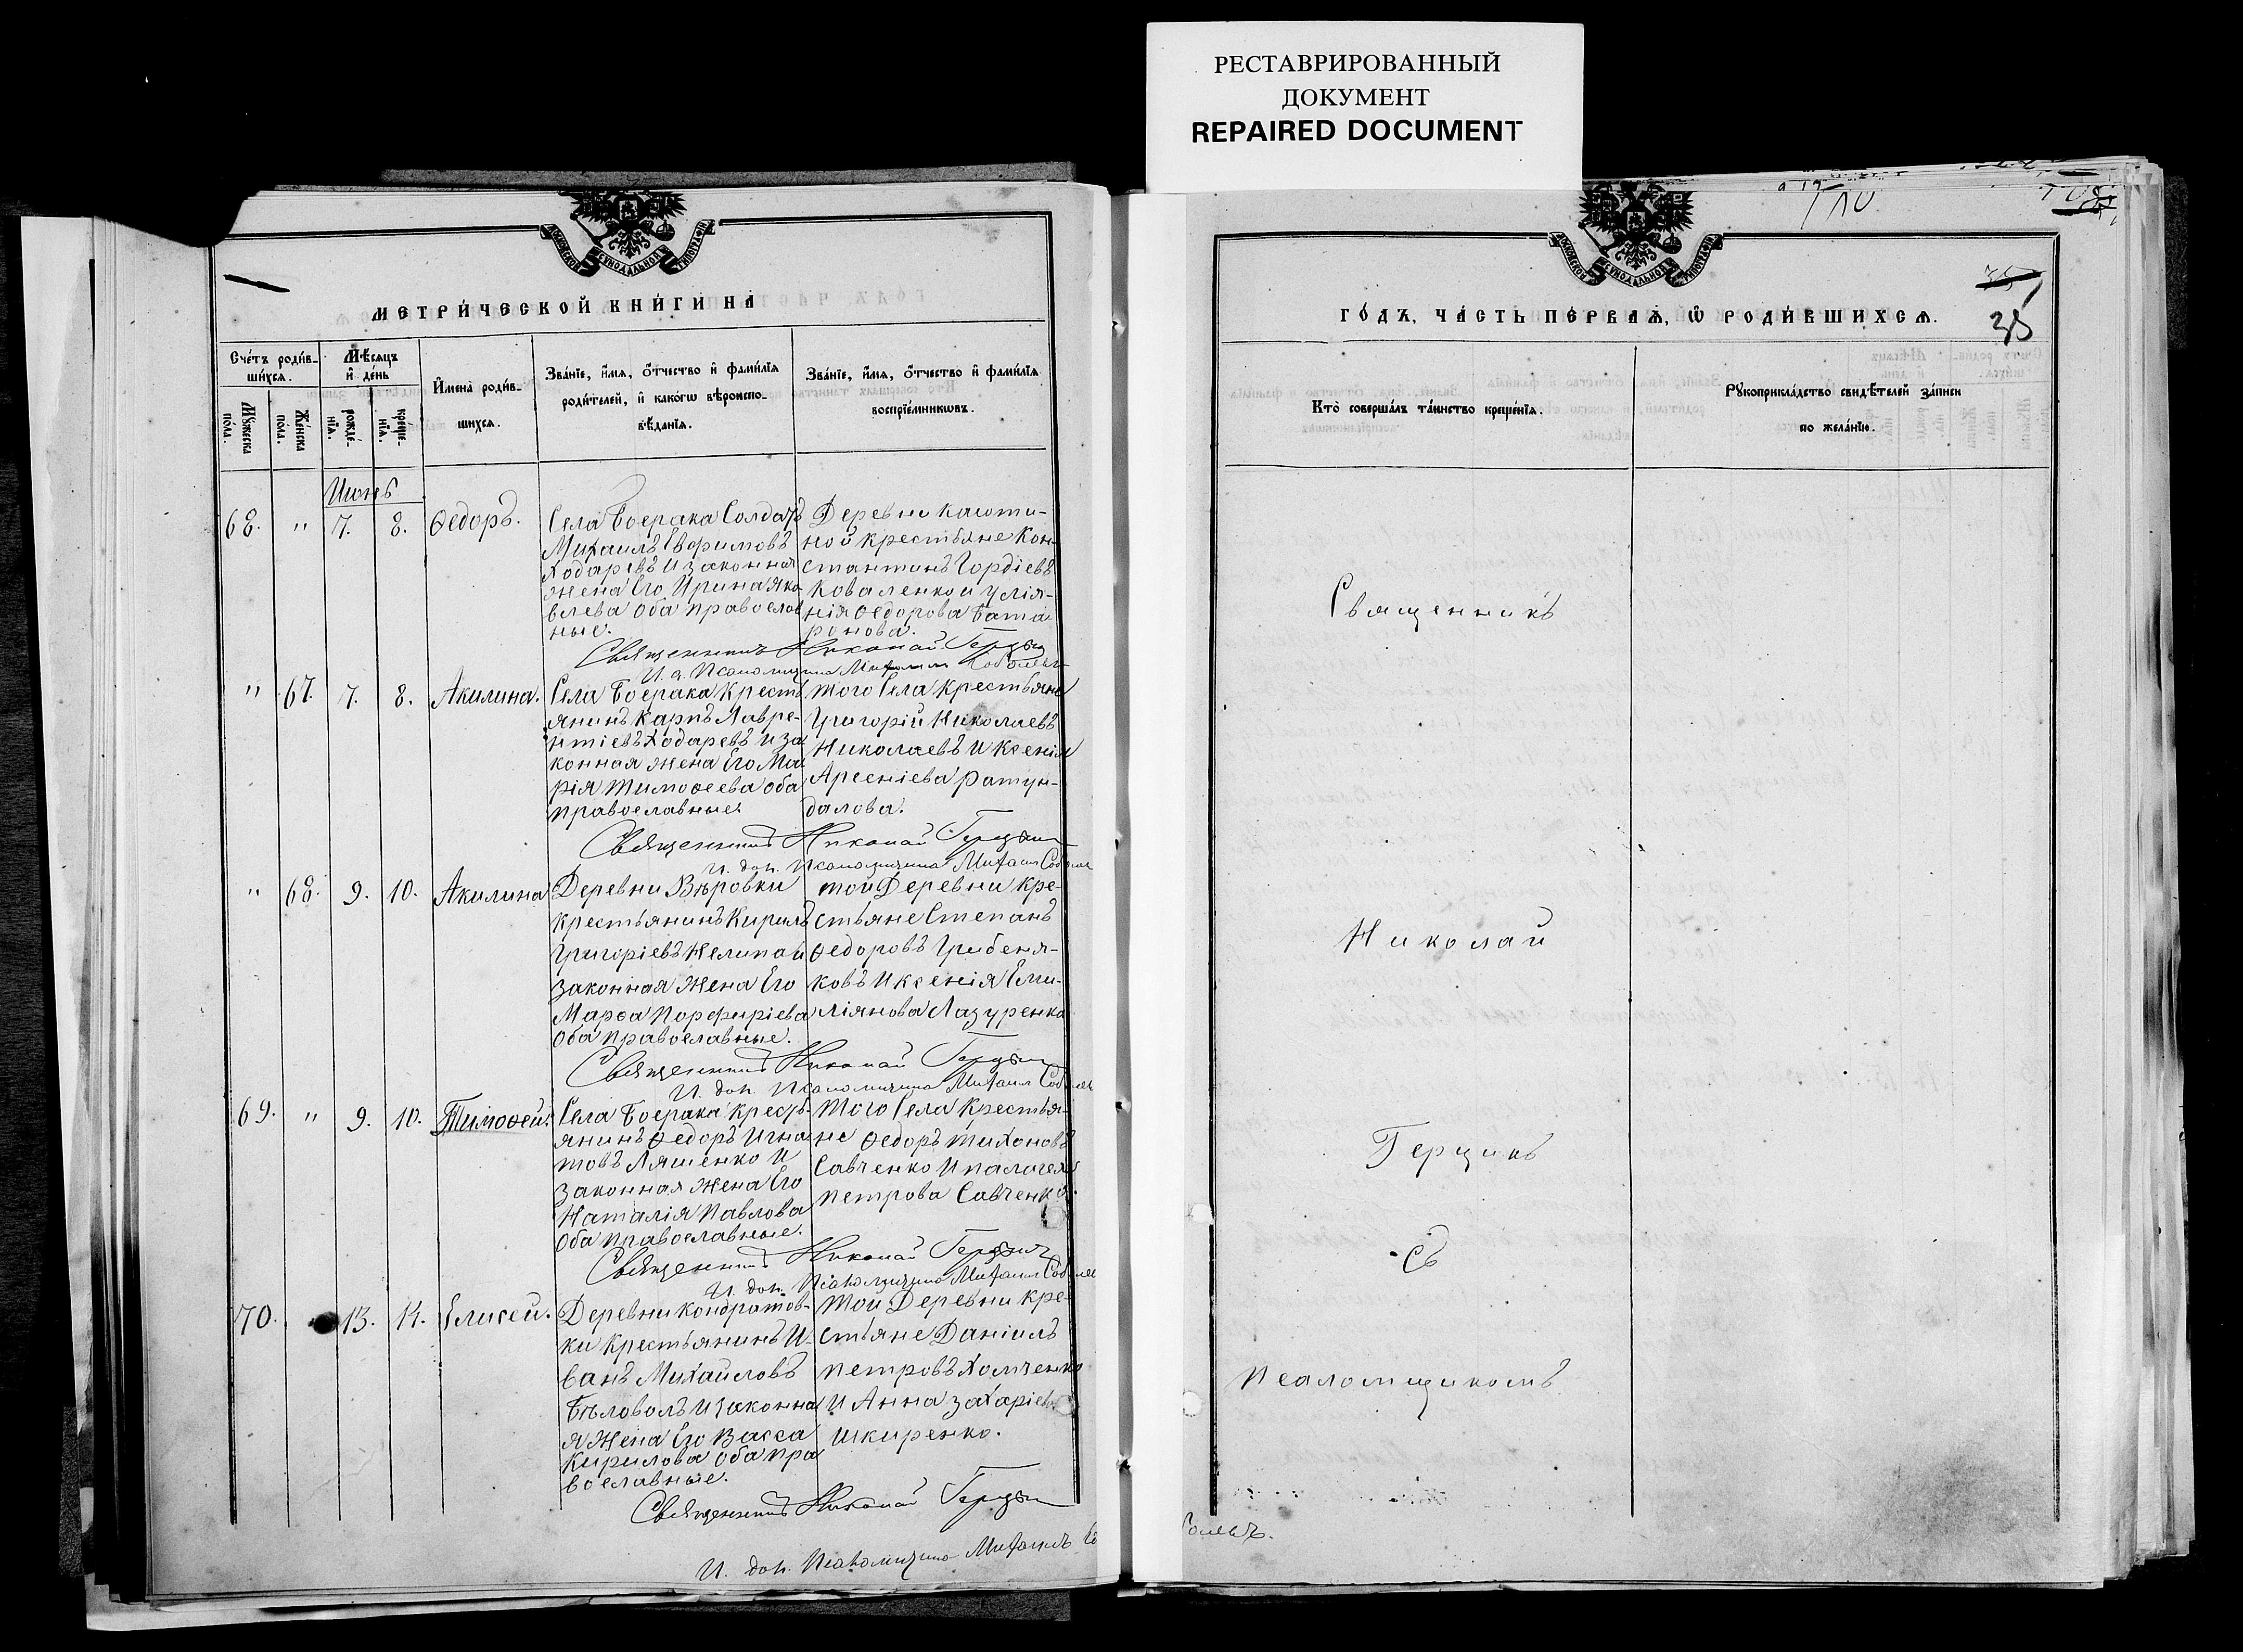 РЕСТАВРИРОВАННЫЙ
ДОКУМЕНТ
REPAIRED DOCUMENT
МОСКОВСКОЙ СѴНОДАЛЬНОЙ ТИПОГРАФІИ
МЕТРИ́ЧЕСКОЙ КНИ́ГИ НА
Сче́тъ роди́в-
ши́хся.
Мѣ́сяцъ
и҆ де́нь
И҆мена̀ роди́в-
шихся.
Зва́нїе, и҆́мя, ѻ҆́тчество и҆ фами́лїя
роди́телей, и҆ како́гѡ вѣроиспо-
вѣ́данїя.
Зва́нїе, и҆́мя, ѻ҆́тчество и҆ фами́лїя
воспрїе́мникѡвъ.
Мꙋ́жеска
по́ла.
Же́нска
по́ла.
рожде́-
нїя.
креще́-
нїя.
Июнь
68. " 7. 8. Ѳедоръ.
Села Боерака Солдатъ
Михаилъ Евфимовъ
Ходаревъ и законная
жена Его Ирина Яко-
влева оба православ
ные.
Деревни Кашти-
ной крестьяне Кон-
стантинъ Гордіевъ
Коваленко и Улія-
нія Ѳедорова Бата
ронова.
Священникъ Николай Герцыкъ
И. д. Псаломщика Михаилъ
" 67. 7. 8. Акилина.
Села Боерака Кресть
янинъ Карпъ Лавре-
нтіевъ Ходаревъ и за
конная жена Его Ма
рія Тимоѳеева оба
православные.
того Села крестьяне
Григорій Николаевъ
Николаевъ и Ксенія
Арсеніева Ратун-
далова.
Священникъ Николай Герцыкъ
И. дол. Псаломщика Михаил Соболь
" 68. 9. 10. Акилина
Деревни Вѣровки
крестьянинъ Кирилъ
Григоріевъ Нелипа и
законная жена Его
Марѳа Порфиріева
Оба православные.
той Деревни кре-
стьяне Степанъ
Ѳедоровъ Грибеня-
ковъ и Ксенія Еми-
ліянова Лазуренко
Священникъ Николай Герцыкъ
И. дол. Псаломщика Михаил Соболь
69. " 9. 10. Тимоѳей.
Села Боерака кресть-
янинъ Ѳедоръ Игна
товъ Ляшенко и
законная жена Его
Наталія Павлова
Оба православные.
того Села Крестья-
не Ѳедоръ Тихоновъ
Савченко и Палагея
Петрова Савченко.
Священникъ Николай Герцыкъ
И. дол. Псаломщика Михаил Соболь
70. 13. 14. Елисей.
Деревни Кондратов-
ки Крестьянинъ И-
ванъ Михайловъ
Бѣловолъ и законна
я жена Его Васса
Кирилова оба пра
вославные.
той Деревни кре-
стьяне Даніилъ
Петровъ Хомченко
и Анна Захаріева
Шкиренко.
Священникъ Николай Герцыкъ
И. дол. Псаломщика Михаилъ Со
МОСКОВСКОЙ СѴНОДАЛЬНОЙ ТИПОГРАФІИ
35
ГО́ДЪ, ЧА́СТЬ ПЕ́РВАѦ, Ѡ҆ РОДИ́ВШИХСѦ.
Кто̀ соверша́лъ та́инство креще́нїя.
Рꙋкоприкла́дство свидѣ́телей за́писи
по жела́нїю.
Священникъ
Николай
Герцикъ
съ
Псаломщикомъ
больъ.